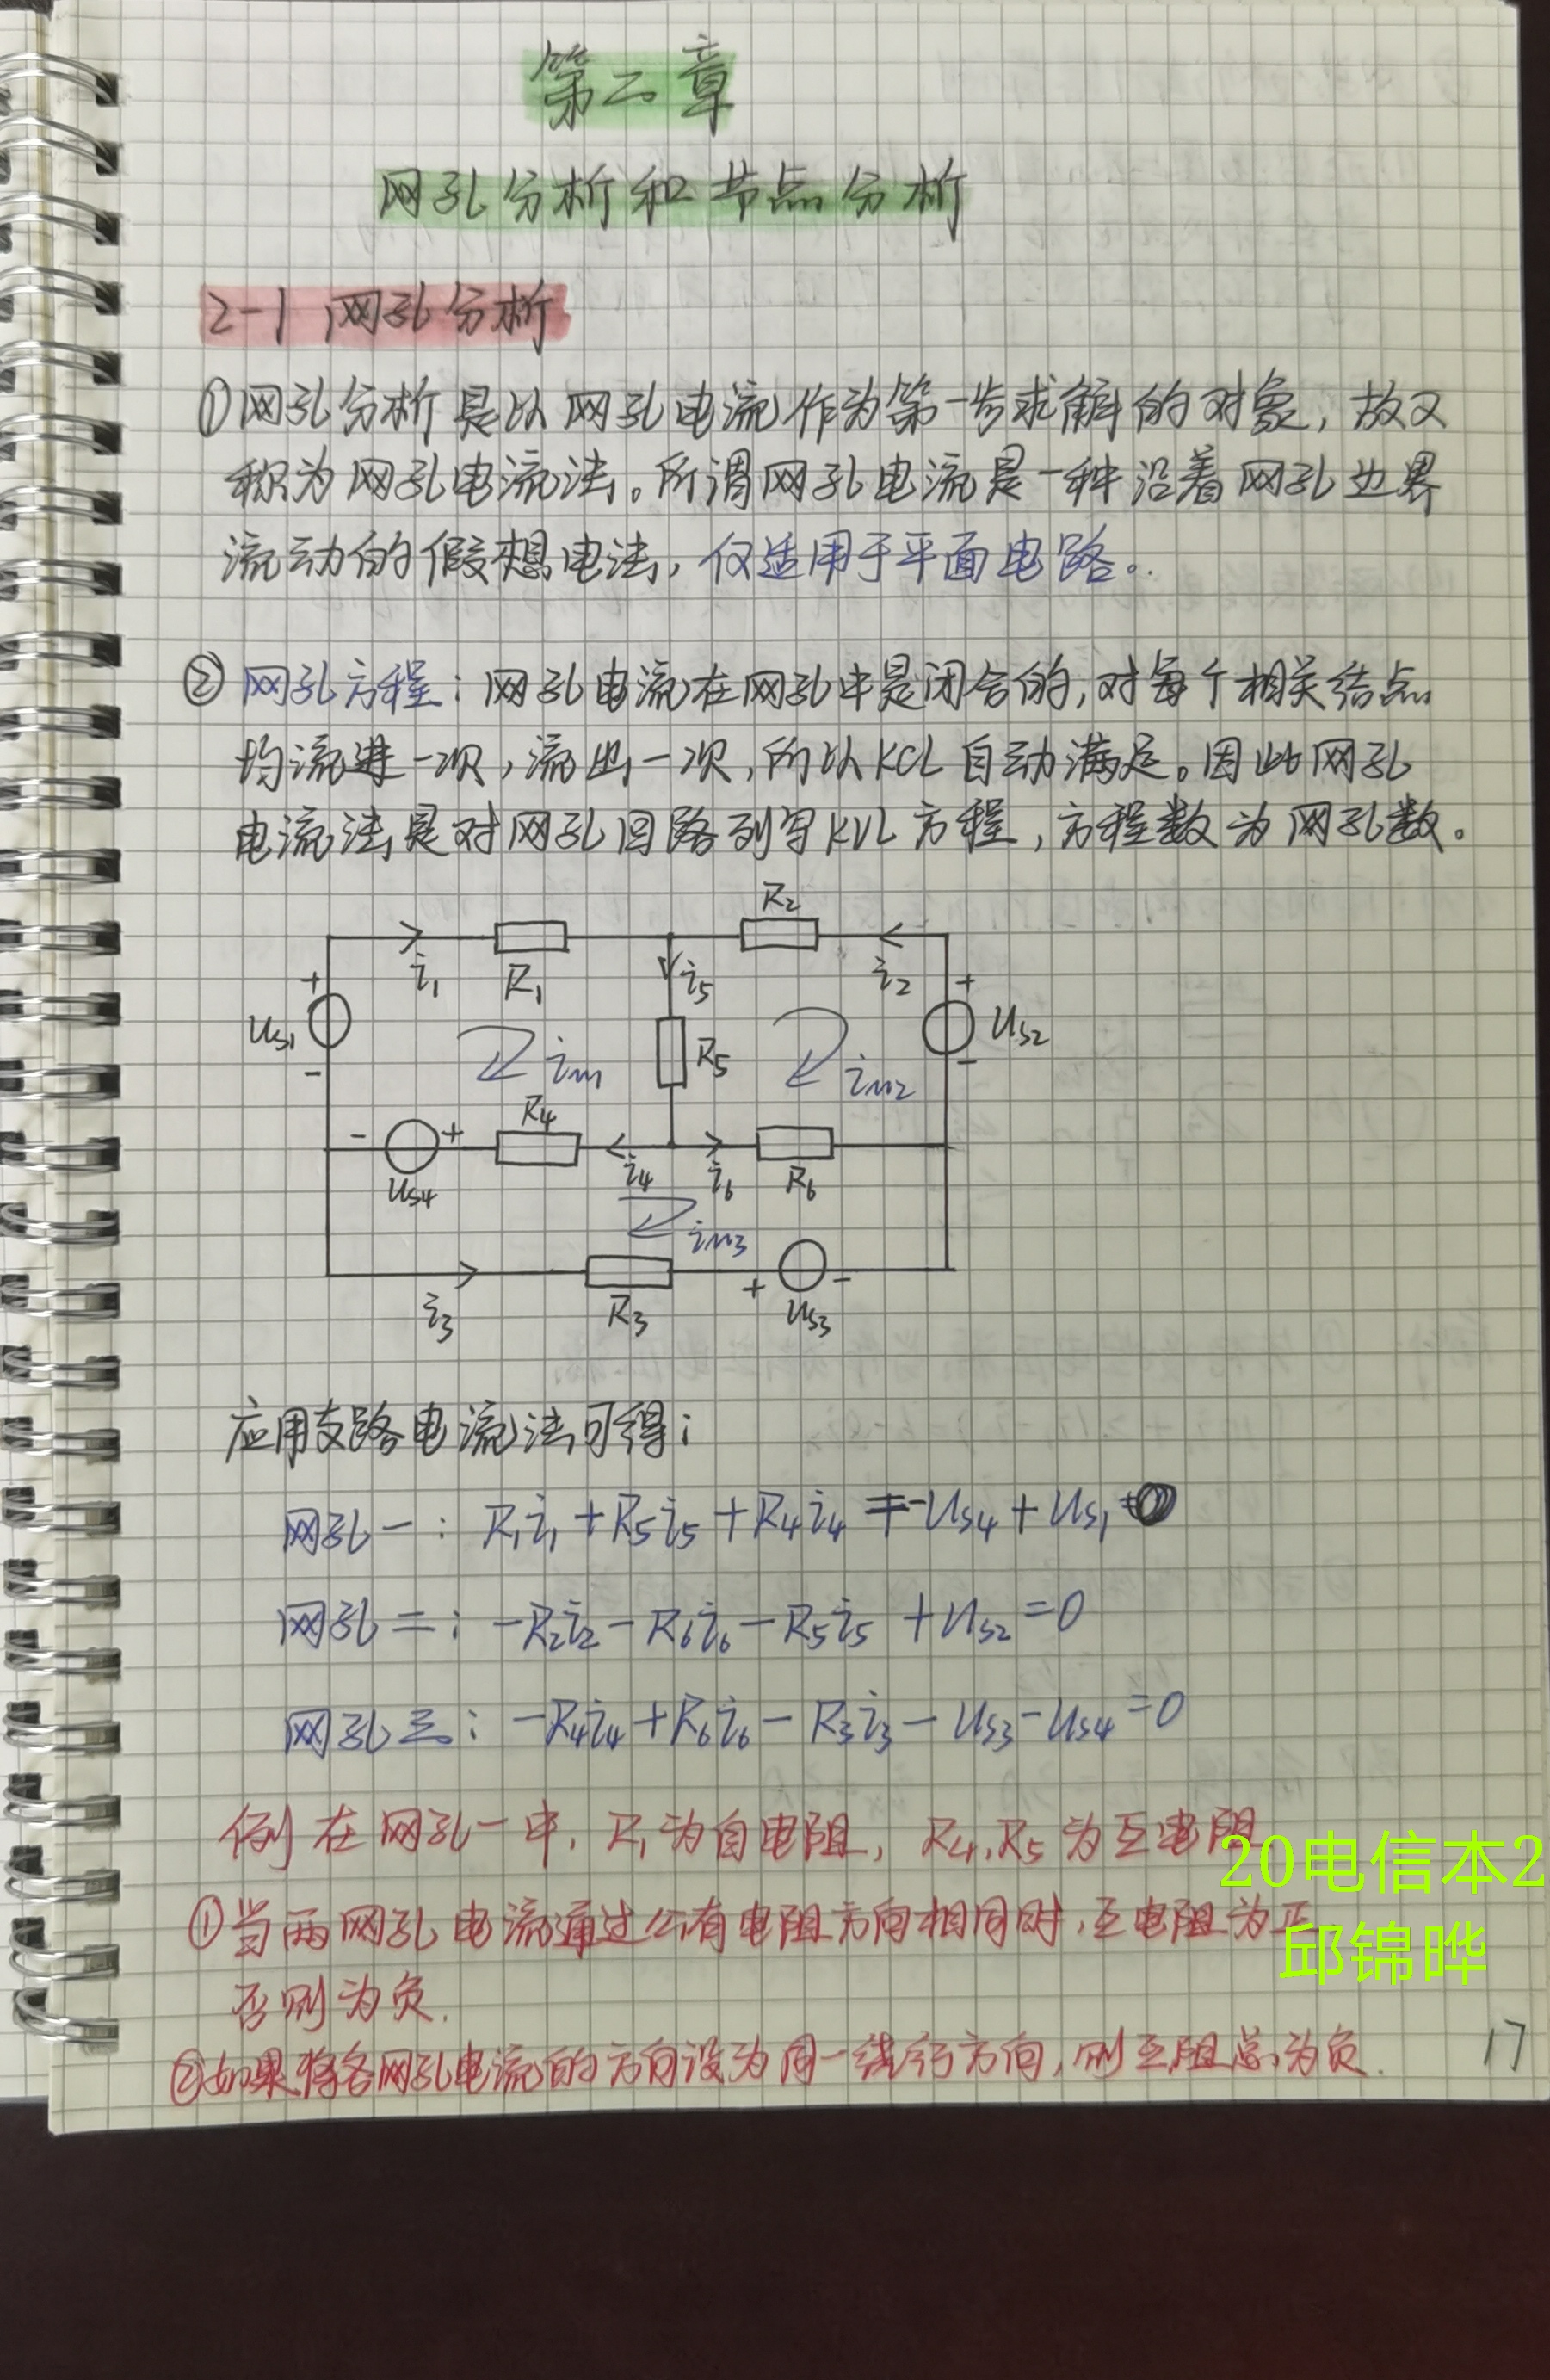 第二章
网孔分析和节点分析
2-1 网孔分析
①网孔分析是以网孔电流作为第一步求解的对象，故又
称为网孔电流法。所谓网孔电流是一种沿着网孔边界
流动的假想电法，仅适用于平面电路。
② 网孔方程：网孔电流在网孔中是闭合的，对每个相关结点
均流进一次，流出一次，所以KCL自动满足。因此网孔
电流法是对网孔回路列写KVL方程，方程数为网孔数。
R₂
i₁ R₁ i₅ i₂
+ +
Us₁ Us₂
- -
im₁ R₅ im₂
R₄
- + i₄ i₆ R₆
Us₄
im₃
+ -
i₃ R₃ Us₃
应用支路电流法可得：
网孔一：R₁i₁+R₅i₅+R₄i₄=-Us₄+Us₁
网孔二：-R₂i₂-R₆i₆-R₅i₅+Us₂=0
网孔三：-R₄i₄+R₆i₆-R₃i₃-Us₃-Us₄=0
例 在网孔一中，R₁为自电阻，R₄,R₅为互电阻
20电信本2
①当两网孔电流通过公有电阻方向相同时，互电阻为正
邱锦晔
否则为负.
②如果将各网孔电流的方向设为同一绕行方向，则互阻总为负.
17